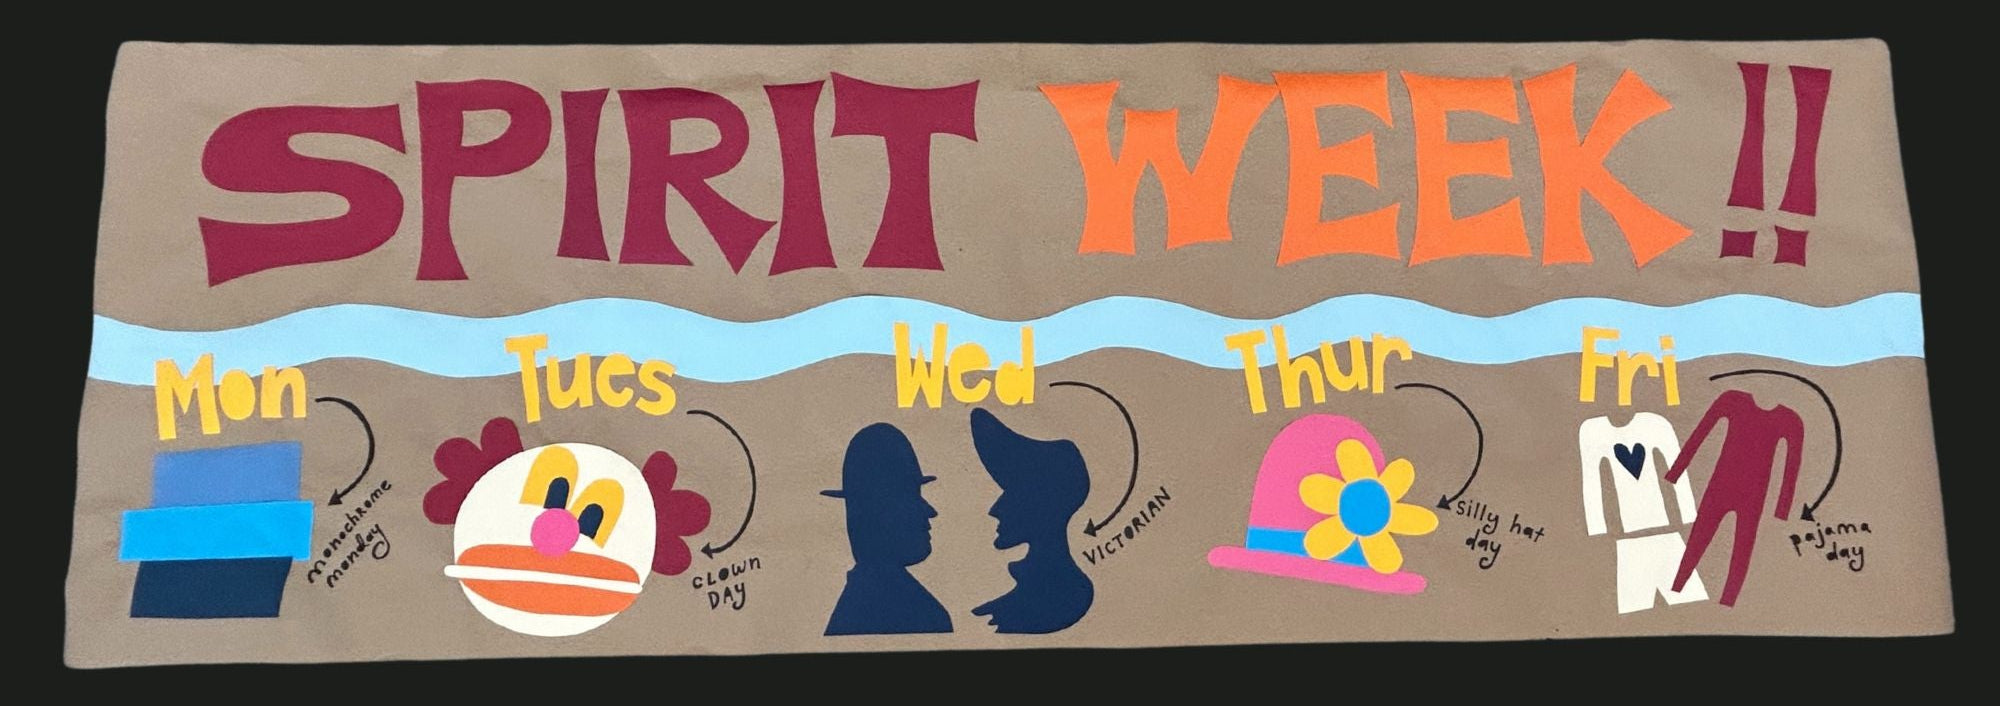 SPIRIT WEEK!!
Mon
Tues
Wed
Thur
Fri
monochrome
monday
CLOWN
DAY
VICTORIAN
silly hat
day
pajama
day